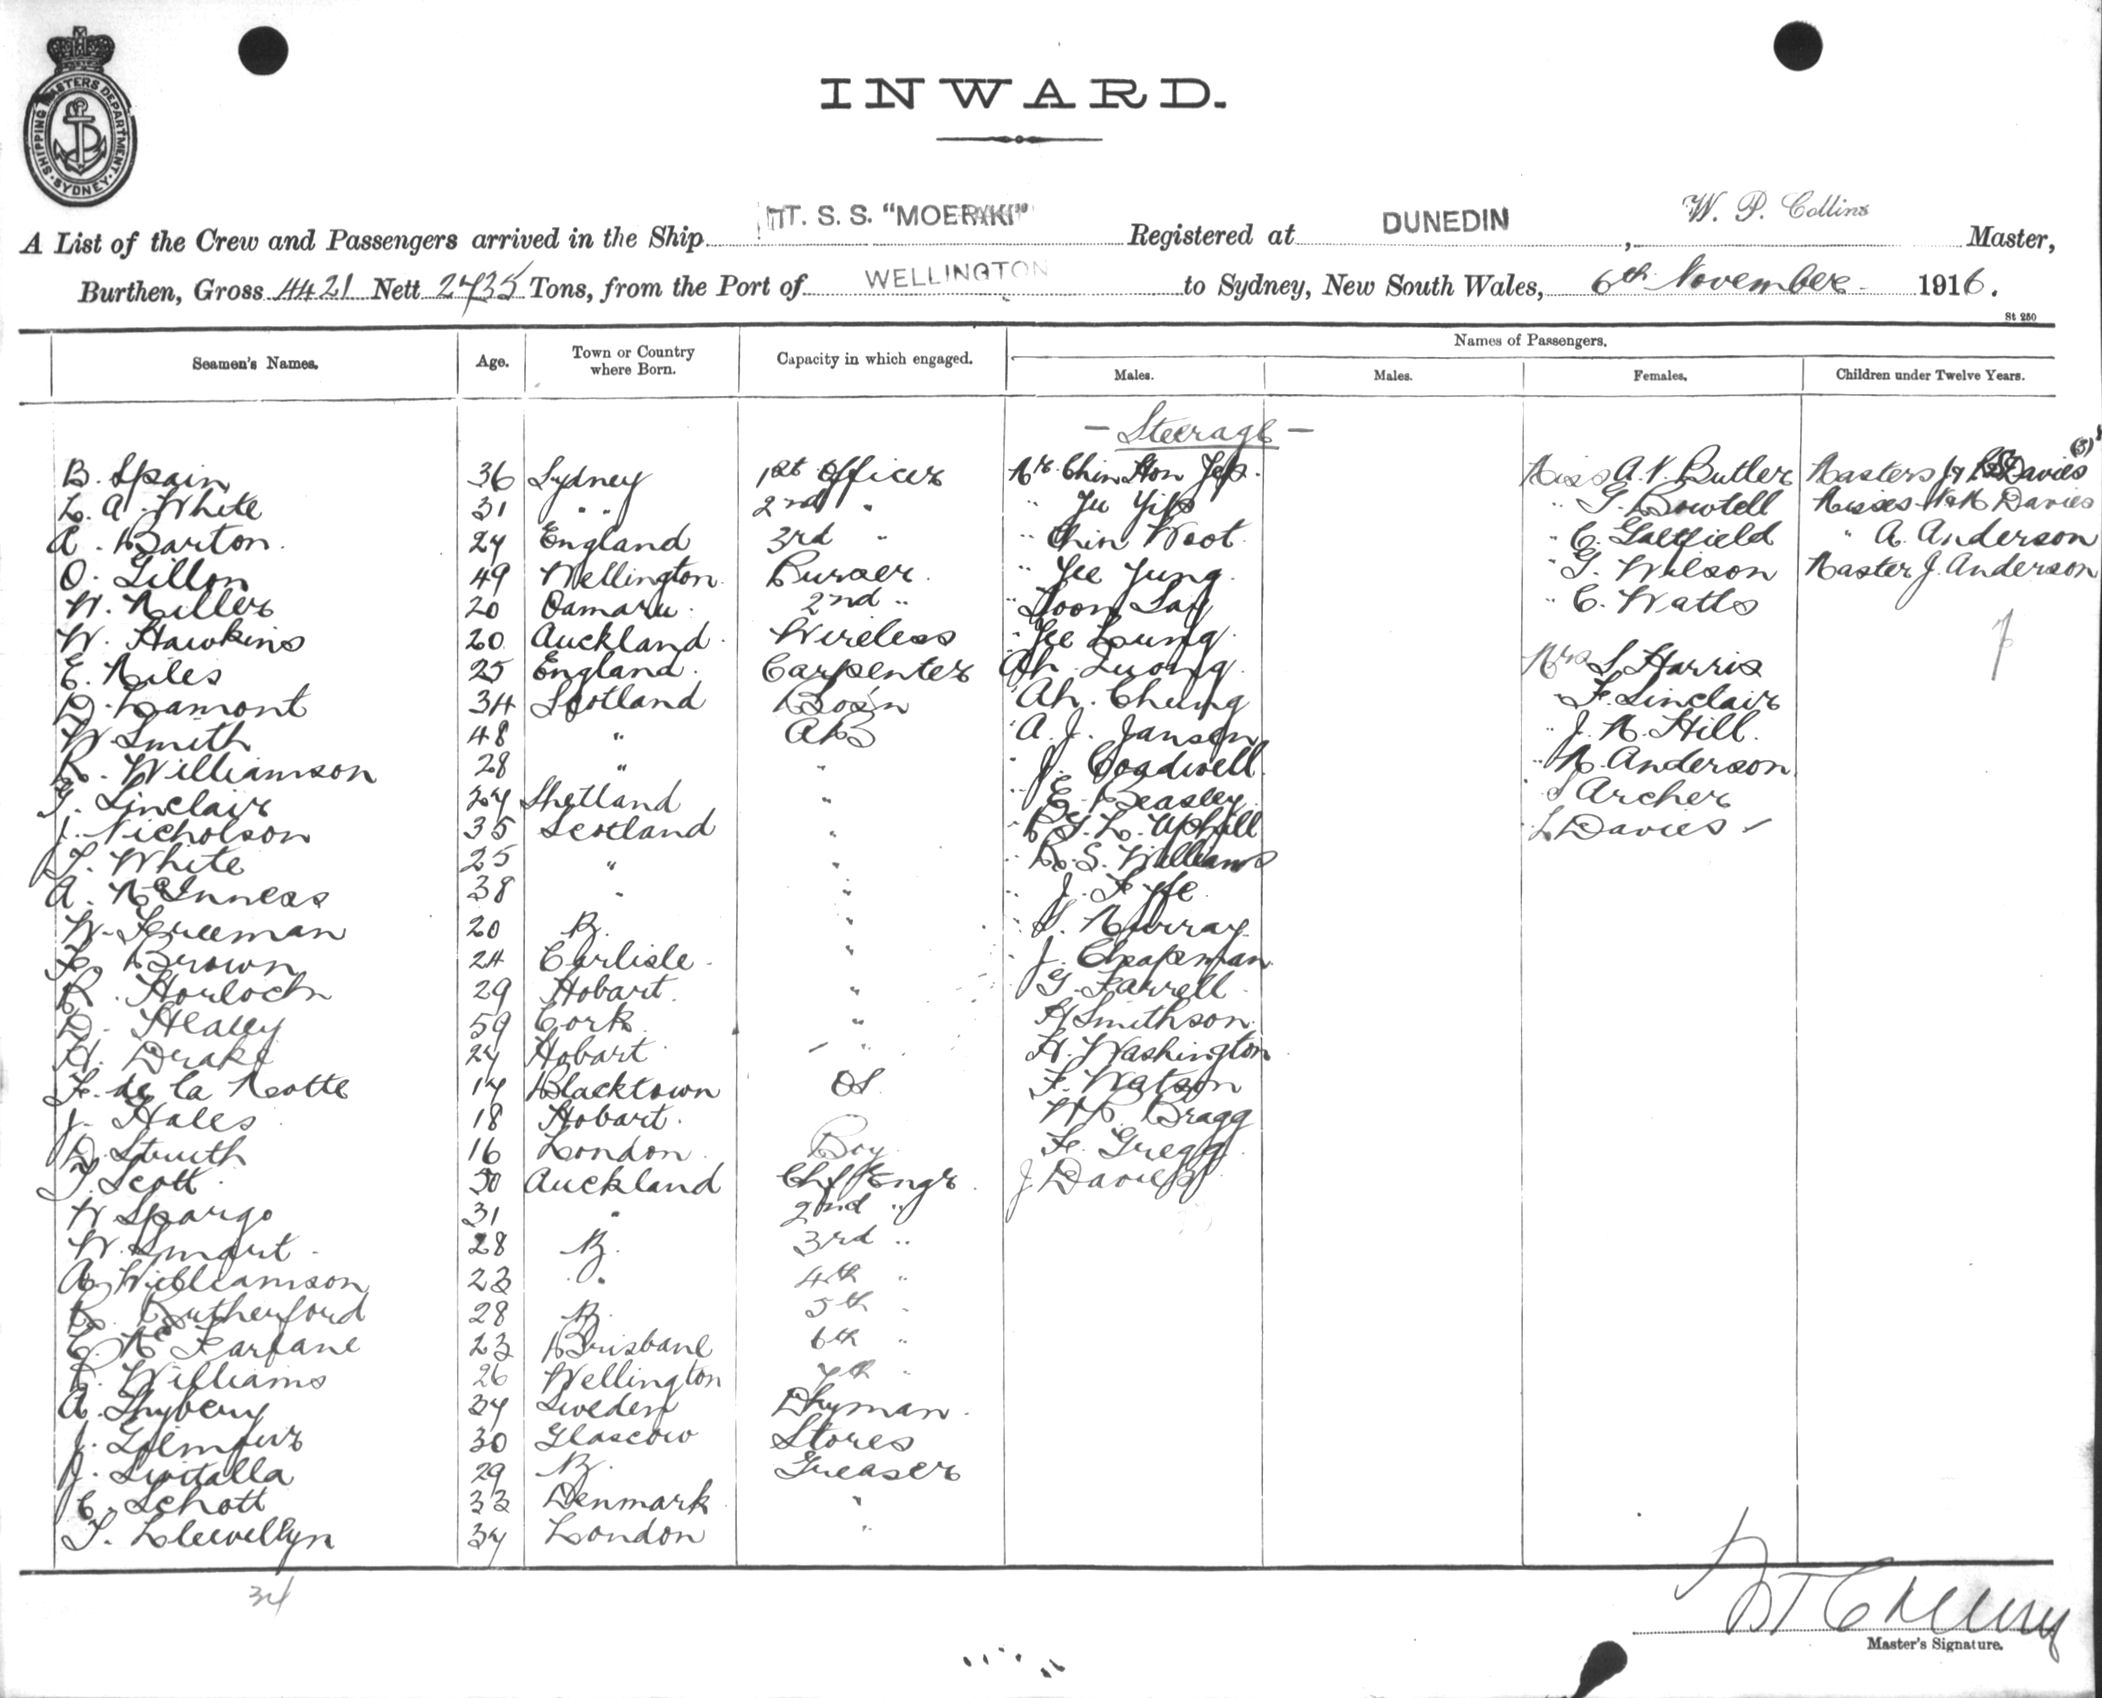 SHIPPING MASTERS DEPARTMENT. SYDNEY.
INWARD.
A List of the Crew and Passengers arrived in the Ship T. S. S. "MOERAKI" Registered at DUNEDIN, W. P. Collins Master,
Burthen, Gross 4421 Nett 2735 Tons, from the Port of WELLINGTON to Sydney, New South Wales, 6th November 1916.
St 250
Seamen's Names. Age. Town or Country where Born. Capacity in which engaged. Names of Passengers.
Males. Males. Females. Children under Twelve Years.
- Steerage -
(3)
B. Spain 36 Sydney 1st Officer Mr. Chin Hon Yep. Miss A. V. Butler Masters Davies
L. A. White 31 " " 2nd " " Yu Yip " G. Bowtell Misses Davies
A. Barton. 27 England 3rd " " Chin Woot " C. " A. Anderson
O. Gillon 49 Wellington. Purser. " Yee Jung. " G. Wilson Master J. Anderson
W. Miller 20 Oamaru. 2nd " " Loon Lay " C. Watts
W. Hawkins 20 Auckland. Wireless " Yee Lung. 7
E. Miles 25 England. Carpenter Ah. Quong. Mrs S. Harris
D. Lamont 34 Scotland Bos'n " Ah. Chung " F. Sinclair
W Smith 48 " AB " A. J. Jansen " J. M. Hill.
R. Williamson 28 " " " J. Coadwell. " M. Anderson
G. Sinclair 27 Shetland " " E. Beasley. S Archer
J. Nicholson 35 Scotland " " G. L. Uphill L Davies
J. White 25 " " " R. S. Williams
A. McInness 38 " " " J. Fyfe
W. Freeman 20 " " S. Murray
F. Brown 24 Carlisle. " " J. Chapman
R. Horlock 29 Hobart. " " G. Farrell
D. Healey 59 Cork. " H Smithson.
H. Drake 27 Hobart " H. Washington
F. de la Motte 17 Blacktown OS. F. Watson
J. Hales 18 Hobart. W. Bragg
D. Struth 16 London. Boy F. Gregg
T. Scott 50 Auckland Chf Engr. J Davies
W Spargo 31 " 2nd "
W. Smart 28 3rd "
A. Williamson 23 " 4th "
R. Rutherford 28 5th "
C. McFarlane 23 Brisbane 6th "
R. Williams 26 Wellington 7th "
A. Thyberg 37 Sweden Dkyman.
J. Gilmour 30 Glascow Stores
J. 29 Greaser
C. Schott 33 Denmark "
T. Llewellyn 37 London "
34
Master's Signature.